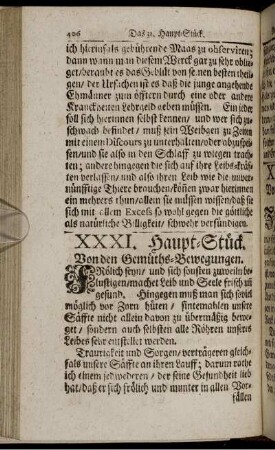 406 Das 31. Haupt-Stück.
ich hierinfals gebührende Maas zu observiren;
dann wann man diesem Werck gar zu sehr oblie-
get/beraubt es das Geblüt von seinen besten thei-
gen/ der Ursachen ist es daß die junge angehende
Ehmänner zum öfftern durch eine oder andere
Kranckheiten Lehrgeld geben müssen. Ein jeder
soll sich hierinnen selbst kennen/ und wer sich zu
schwach befindet/ muß sein Weibgen zu Zeiten
mit einem Discours zu unterhalten/oder abzuspei-
sen/ und sie also in den Schlaff zu wiegen trach-
ten; andere hingegen die sich auf ihre Leibs-kräff-
ten verlassen/ und also ihren Leib wie die unver-
nünfftige Thiere brauchen/können zwar hierinnen
ein mehrers thun/allein sie müssen wissen/daß sie
sich mit allem Excess so wohl gegen die göttliche
als natürliche Billigkeit/ schwehr versündigen.
XXXI. Haupt-Stück.
Von den Gemüths-Bewegungen.
FRölich seyn/ und sich sonsten zuweiln be-
lustigen/machet Leib und Seele frisch uñ
gesund. Hingegen muß man sich soviel
möglich vor Zorn hüten/ sintemahlen unsere
Säffte nicht allein davon zu übermäßig bewe-
get/ sondern auch selbsten alle Röhren unsers
Leibes sehr entstellet werden.
Traurigkeit und Sorgen/ verträgeren gleich-
fals unsere Säffte an ihren Lauff; darum rathe
ich einem jedwederen/ der seine Gesundheit lieb
hat/daß er sich frölich und munter in allen Vor-
fällen